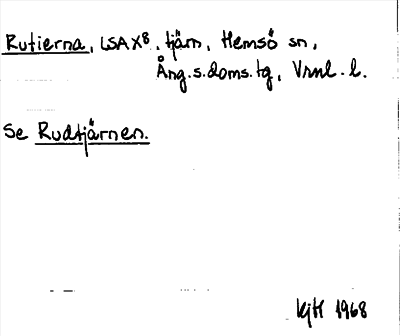 Rutierna, LSA X8, tjärn, Hemsö sn,
Ång.s.doms.tg, Vrnl. l.
Se Rudtjärnen.
KjH 1968